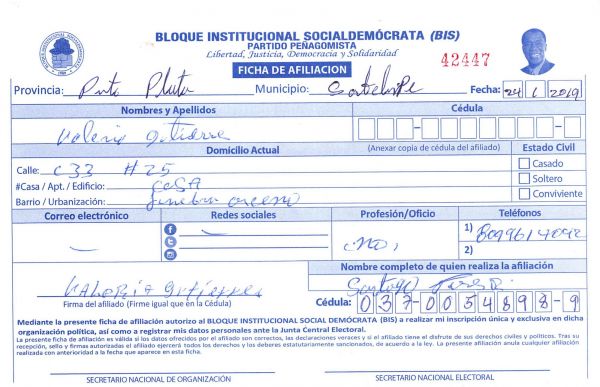 BLOQUE INSTITUCIONAL SOCIALDEMÓCRATA (BIS)
PARTIDO PEÑAGOMISTA
Libertad, Justicia, Democracia y Solidaridad
42447
FICHA DE AFILIACION
Provincia: Municipio: Fecha: 24 1 2019
Nombres y Apellidos Cédula
Valerio
Domicilio Actual (Anexar copia de cédula del afiliado) Estado Civil
Calle: C 33 # 25 Casado
#Casa / Apt. / Edificio: CASA Soltero
Barrio / Urbanización: Conviviente
Correo electrónico Redes sociales Profesión/Oficio Teléfonos
1)
2)
Nombre completo de quien realiza la afiliación
VALERIO
Firma del afiliado (Firme igual que en la Cédula) Cédula: 037-0054898-9
Mediante la presente ficha de afiliación autorizo al BLOQUE INSTITUCIONAL SOCIAL DEMÓCRATA (BIS) a realizar mi inscripción única y exclusiva en dicha
organización política, así como a registrar mis datos personales ante la Junta Central Electoral.
La presente ficha de afiliación es válida si los datos ofrecidos por el afiliado son correctos, las declaraciones veraces y si el afiliado tiene el disfrute de sus derechos civiles y políticos. Tras su
recepción, sello y firmas autorizadas el afiliado ejercerá todos los derechos y los deberes estatutariamente sancionados, de acuerdo a la ley. La presente afiliación anula cualquier afiliación
realizada con anterioridad a la fecha que aparece en esta ficha.
SECRETARIO NACIONAL DE ORGANIZACIÓN SECRETARIO NACIONAL ELECTORAL